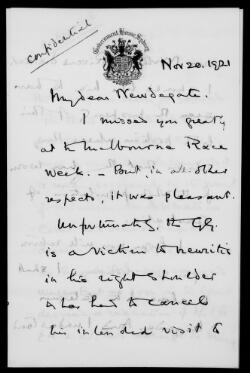 Confidential
Government House, Sydney
Nov 20. 1921
My dear Newdegate.
I missed you greatly
at the Melbourne Race
Week. - But, in all other
respects, it was pleasant.
Unfortunately, the G.G.
is a victim to neuritis
in his right shoulder
& has had to cancel
his intended visit to